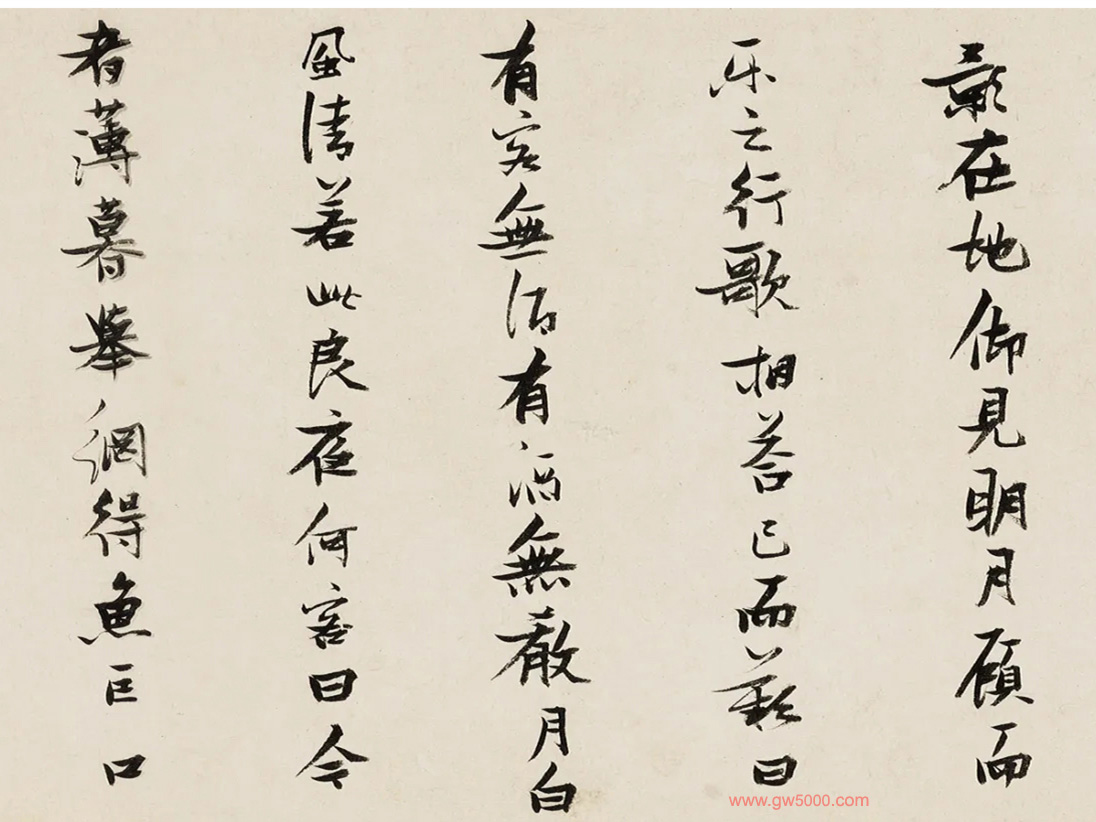 影在地仰見明月顧而
乐之行歌相荅已而歎曰
有客無酒有酒無殽月白
風清若此良夜何客曰今
者薄暮舉網得魚巨口
www.gw5000.com